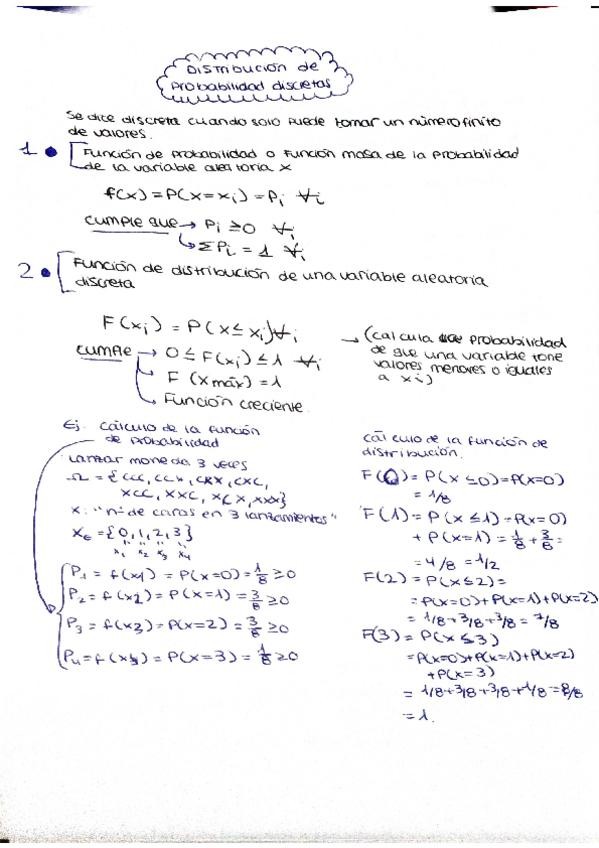 Distribución de
probabilidad discretas
Se dice discreta cuando solo puede tomar un número finito
de valores.
1 • Función de probabilidad o función masa de la probabilidad
de la variable aleatoria x
f(x) = P(X=xᵢ) = Pᵢ ∀ᵢ
cumple que → Pᵢ ≥ 0 ∀ᵢ
↳ ΣPᵢ = 1 ∀ᵢ
2 • Función de distribución de una variable aleatoria
discreta
F(xᵢ) = P(x ≤ xᵢ) ∀ᵢ
cumple → 0 ≤ F(xᵢ) ≤ 1 ∀ᵢ
F (x máx) = 1
Función creciente.
→ (calcula probabilidad
de que una variable tome
valores menores o iguales
a xᵢ)
Ej. cálculo de la función
de probabilidad
Lanzar moneda 3 veces
Ω = {CCC, CCX, CXX, CXC,
XCC, XXC, XCX, XXX}
X: "nº de caras en 3 lanzamientos"
Xϵ = {0, 1, 2, 3}
x₁ x₂ x₃ x₄
P₁ = f(x₁) = P(x=0) = 1/8 ≥ 0
P₂ = f(x₂) = P(x=1) = 3/8 ≥ 0
P₃ = f(x₃) = P(x=2) = 3/8 ≥ 0
P₄ = f(x₄) = P(x=3) = 1/8 ≥ 0
cálculo de la función de
distribución.
F(0) = P(x ≤ 0) = P(x=0)
= 1/8
F(1) = P(x ≤ 1) = P(x=0)
+ P(x=1) = 1/8 + 3/8 =
= 4/8 = 1/2
F(2) = P(x ≤ 2) =
= P(x=0) + P(x=1) + P(x=2)
= 1/8 + 3/8 + 3/8 = 7/8
F(3) = P(x ≤ 3)
= P(x=0) + P(x=1) + P(x=2)
+ P(x=3)
= 1/8 + 3/8 + 3/8 + 1/8 = 8/8
= 1.